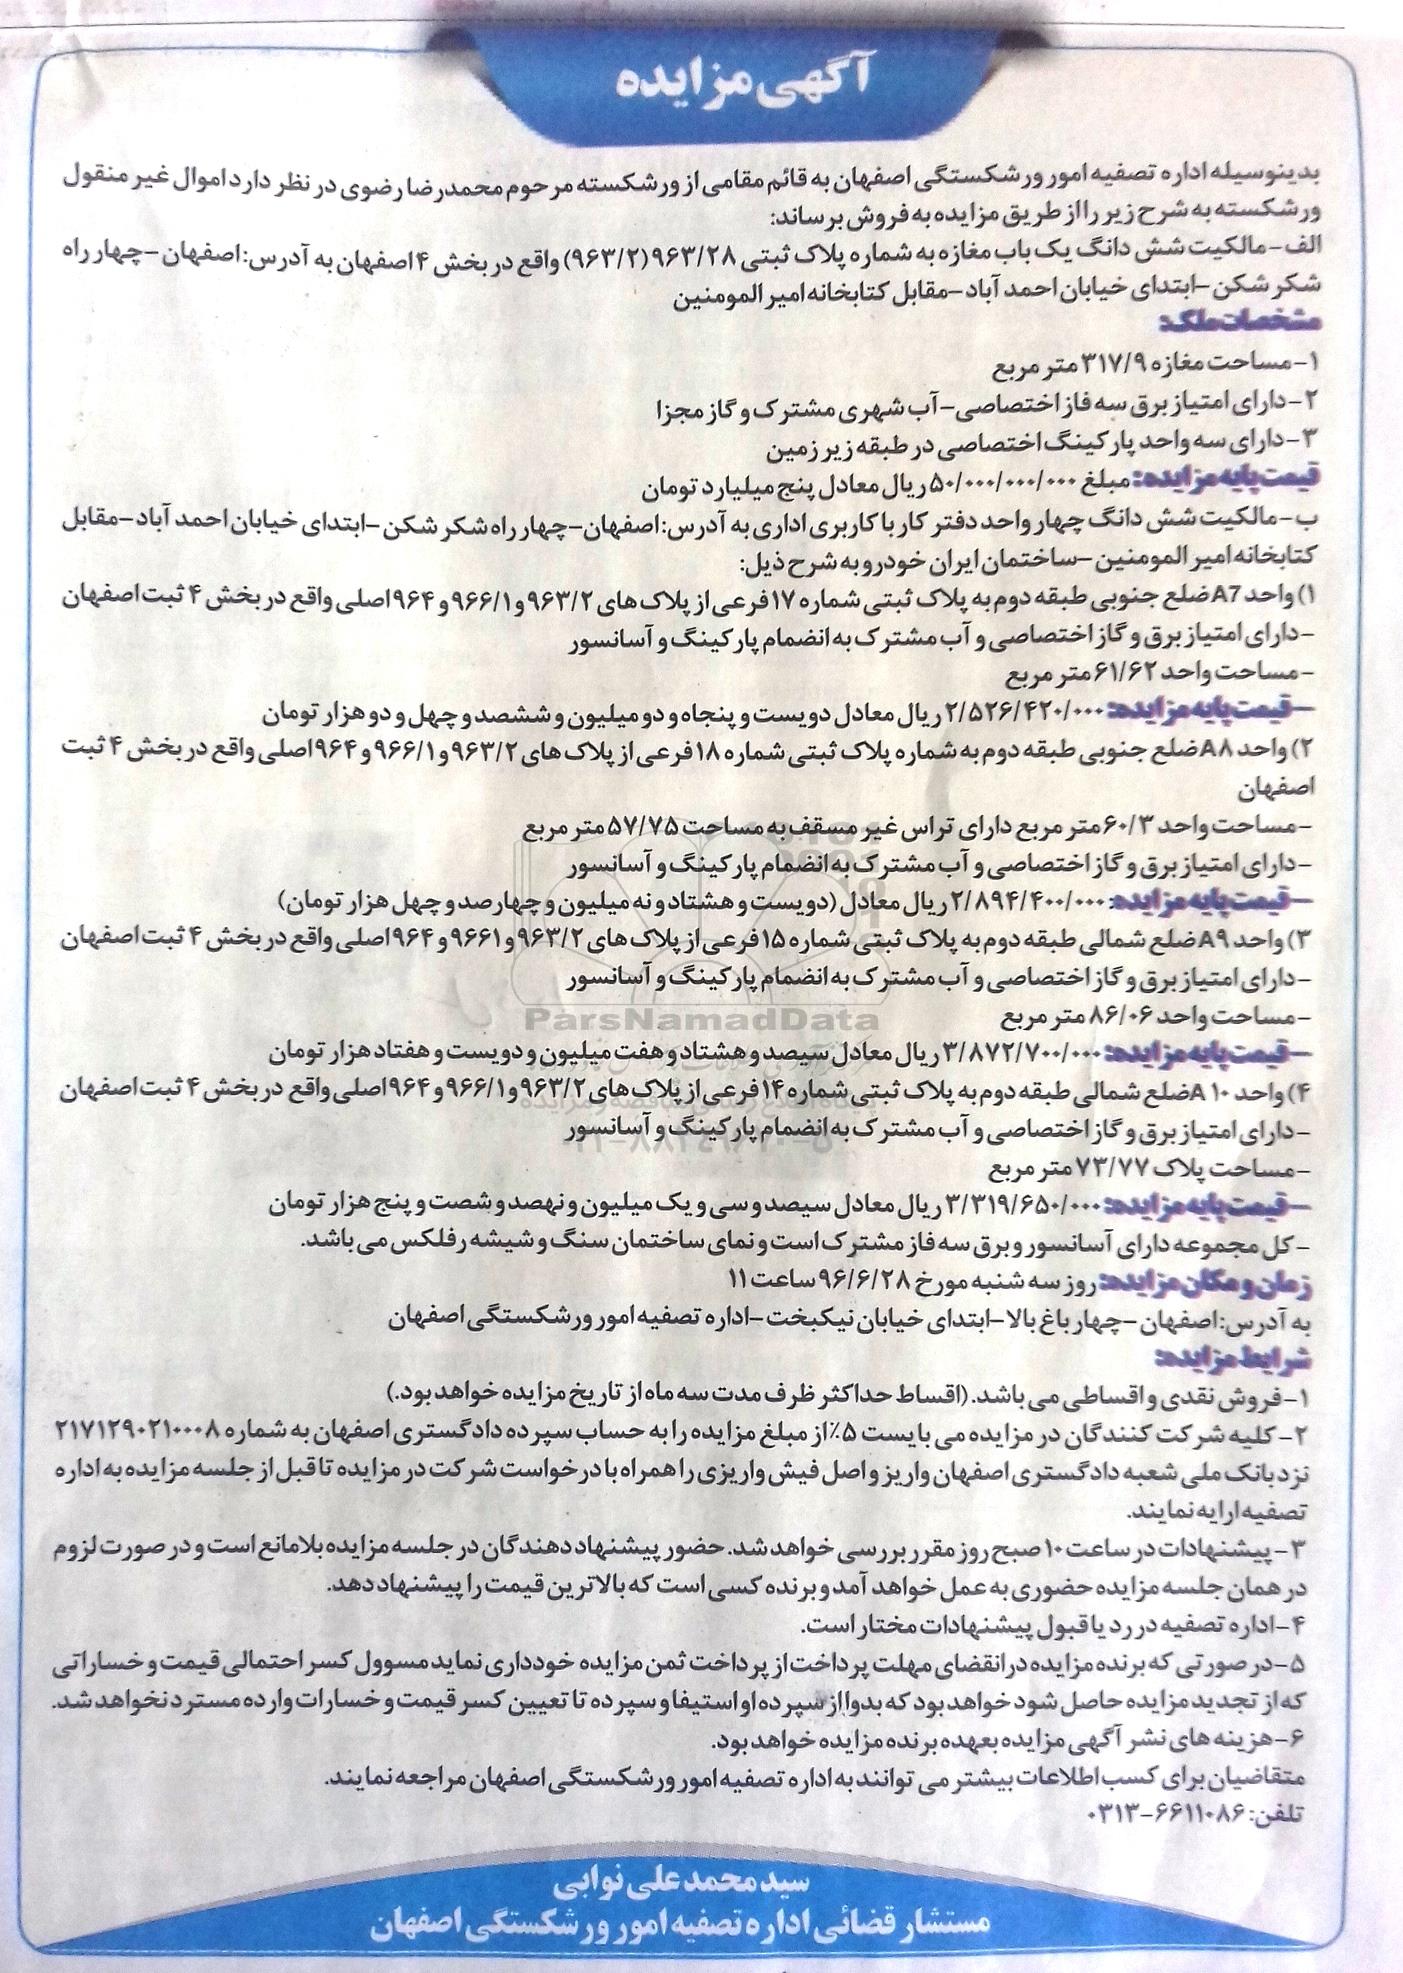 آگهی مزایده
بدینوسیله اداره تصفیه امور ورشکستگی اصفهان به قائم مقامی از ورشکسته مرحوم محمدرضا رضوی در نظر دارد اموال غیر منقول
ورشکسته به شرح زیر را از طریق مزایده به فروش برساند:
الف-مالکیت شش دانگ یک باب مغازه به شماره پلاک ثبتی ۹۶۳/۲۸ (۹۶۳/۲) واقع در بخش ۴ اصفهان به آدرس: اصفهان -چهار راه
شکر شکن -ابتدای خیابان احمد آباد -مقابل کتابخانه امیر المومنین
مشخصات ملک:
۱-مساحت مغازه ۳۱۷/۹ متر مربع
۲-دارای امتیاز برق سه فاز اختصاصی-آب شهری مشترک و گاز مجزا
۳-دارای سه واحد پارکینگ اختصاصی در طبقه زیر زمین
قیمت پایه مزایده: مبلغ ۵۰/۰۰۰/۰۰۰/۰۰۰ ریال معادل پنج میلیارد تومان
ب-مالکیت شش دانگ چهار واحد دفتر کار با کاربری اداری به آدرس: اصفهان-چهار راه شکر شکن -ابتدای خیابان احمد آباد-مقابل
کتابخانه امیر المومنین -ساختمان ایران خودرو به شرح ذیل:
۱) واحد A7 ضلع جنوبی طبقه دوم به پلاک ثبتی شماره ۱۷ فرعی از پلاک های ۹۶۳/۲ و ۹۶۶/۱ و ۹۶۴ اصلی واقع در بخش ۴ ثبت اصفهان
-دارای امتیاز برق و گاز اختصاصی و آب مشترک به انضمام پارکینگ و آسانسور
-مساحت واحد ۶۱/۶۲ متر مربع
-قیمت پایه مزایده: ۲/۵۲۶/۴۲۰/۰۰۰ ریال معادل دویست و پنجاه و دو میلیون و ششصد و چهل و دو هزار تومان
۲) واحد A۸ ضلع جنوبی طبقه دوم به شماره پلاک ثبتی شماره ۱۸ فرعی از پلاک های ۹۶۳/۲ و ۹۶۶/۱ و ۹۶۴ اصلی واقع در بخش ۴ ثبت
اصفهان
-مساحت واحد ۶۰/۳ متر مربع دارای تراس غیر مسقف به مساحت ۵۷/۷۵ متر مربع
-دارای امتیاز برق و گاز اختصاصی و آب مشترک به انضمام پارکینگ و آسانسور
-قیمت پایه مزایده: ۲/۸۹۴/۴۰۰/۰۰۰ ریال معادل (دویست و هشتاد و نه میلیون و چهارصد و چهل هزار تومان)
۳) واحد A۹ ضلع شمالی طبقه دوم به پلاک ثبتی شماره ۱۵ فرعی از پلاک های ۹۶۳/۲ و ۹۶۶۱ و ۹۶۴ اصلی واقع در بخش ۴ ثبت اصفهان
-دارای امتیاز برق و گاز اختصاصی و آب مشترک به انضمام پارکینگ و آسانسور
-مساحت واحد ۸۶/۰۶ متر مربع
ParsNamadData
-قیمت پایه مزایده: ۳/۸۷۲/۷۰۰/۰۰۰ ریال معادل سیصد و هشتاد و هفت میلیون و دویست و هفتاد هزار تومان
۴) واحد A۱۰ ضلع شمالی طبقه دوم به پلاک ثبتی شماره ۱۴ فرعی از پلاک های ۹۶۳/۲ و ۹۶۶/۱ و ۹۶۴ اصلی واقع در بخش ۴ ثبت اصفهان
-دارای امتیاز برق و گاز اختصاصی و آب مشترک به انضمام پارکینگ و آسانسور
-مساحت پلاک ۷۳/۷۷ متر مربع
-قیمت پایه مزایده: ۳/۳۱۹/۶۵۰/۰۰۰ ریال معادل سیصد و سی و یک میلیون و نهصد و شصت و پنج هزار تومان
-کل مجموعه دارای آسانسور و برق سه فاز مشترک است و نمای ساختمان سنگ و شیشه رفلکس می باشد.
زمان و مکان مزایده: روز سه شنبه مورخ ۹۶/۶/۲۸ ساعت ۱۱
به آدرس: اصفهان -چهار باغ بالا-ابتدای خیابان نیکبخت-اداره تصفیه امور ورشکستگی اصفهان
شرایط مزایده:
۱-فروش نقدی و اقساطی می باشد. (اقساط حداکثر ظرف مدت سه ماه از تاریخ مزایده خواهد بود.)
۲-کلیه شرکت کنندگان در مزایده می بایست ۵٪ از مبلغ مزایده را به حساب سپرده دادگستری اصفهان به شماره ۲۱۷۱۲۹۰۲۱۰۰۰۸
نزد بانک ملی شعبه دادگستری اصفهان واریز و اصل فیش واریزی را همراه با درخواست شرکت در مزایده تا قبل از جلسه مزایده به اداره
تصفیه ارایه نمایند.
۳-پیشنهادات در ساعت ۱۰ صبح روز مقرر بررسی خواهد شد. حضور پیشنهاد دهندگان در جلسه مزایده بلامانع است و در صورت لزوم
در همان جلسه مزایده حضوری به عمل خواهد آمد و برنده کسی است که بالاترین قیمت را پیشنهاد دهد.
۴-اداره تصفیه در رد یا قبول پیشنهادات مختار است.
۵-در صورتی که برنده مزایده در انقضای مهلت پرداخت از پرداخت ثمن مزایده خودداری نماید مسوول کسر احتمالی قیمت و خساراتی
که از تجدید مزایده حاصل شود خواهد بود که بدوا از سپرده او استیفا و سپرده تا تعیین کسر قیمت و خسارات وارده مسترد نخواهد شد.
۶-هزینه های نشر آگهی مزایده بعهده برنده مزایده خواهد بود.
متقاضیان برای کسب اطلاعات بیشتر می توانند به اداره تصفیه امور ورشکستگی اصفهان مراجعه نمایند.
تلفن: ۰۳۱۳-۶۶۱۱۰۸۶
سید محمد علی نوابی
مستشار قضائی اداره تصفیه امور ورشکستگی اصفهان